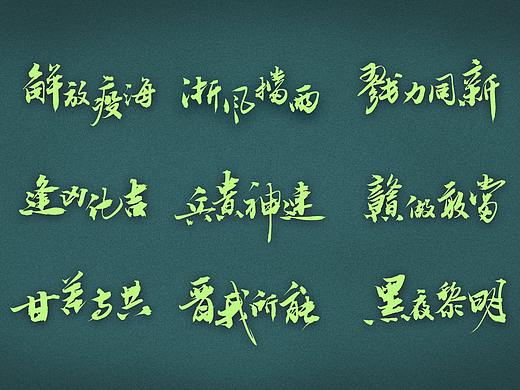 解放疫海 浙风挡雨 戮力同新
逢凶化吉 兵贵神速 赣做敢當
甘苦与共 晋我所能 黑夜黎明